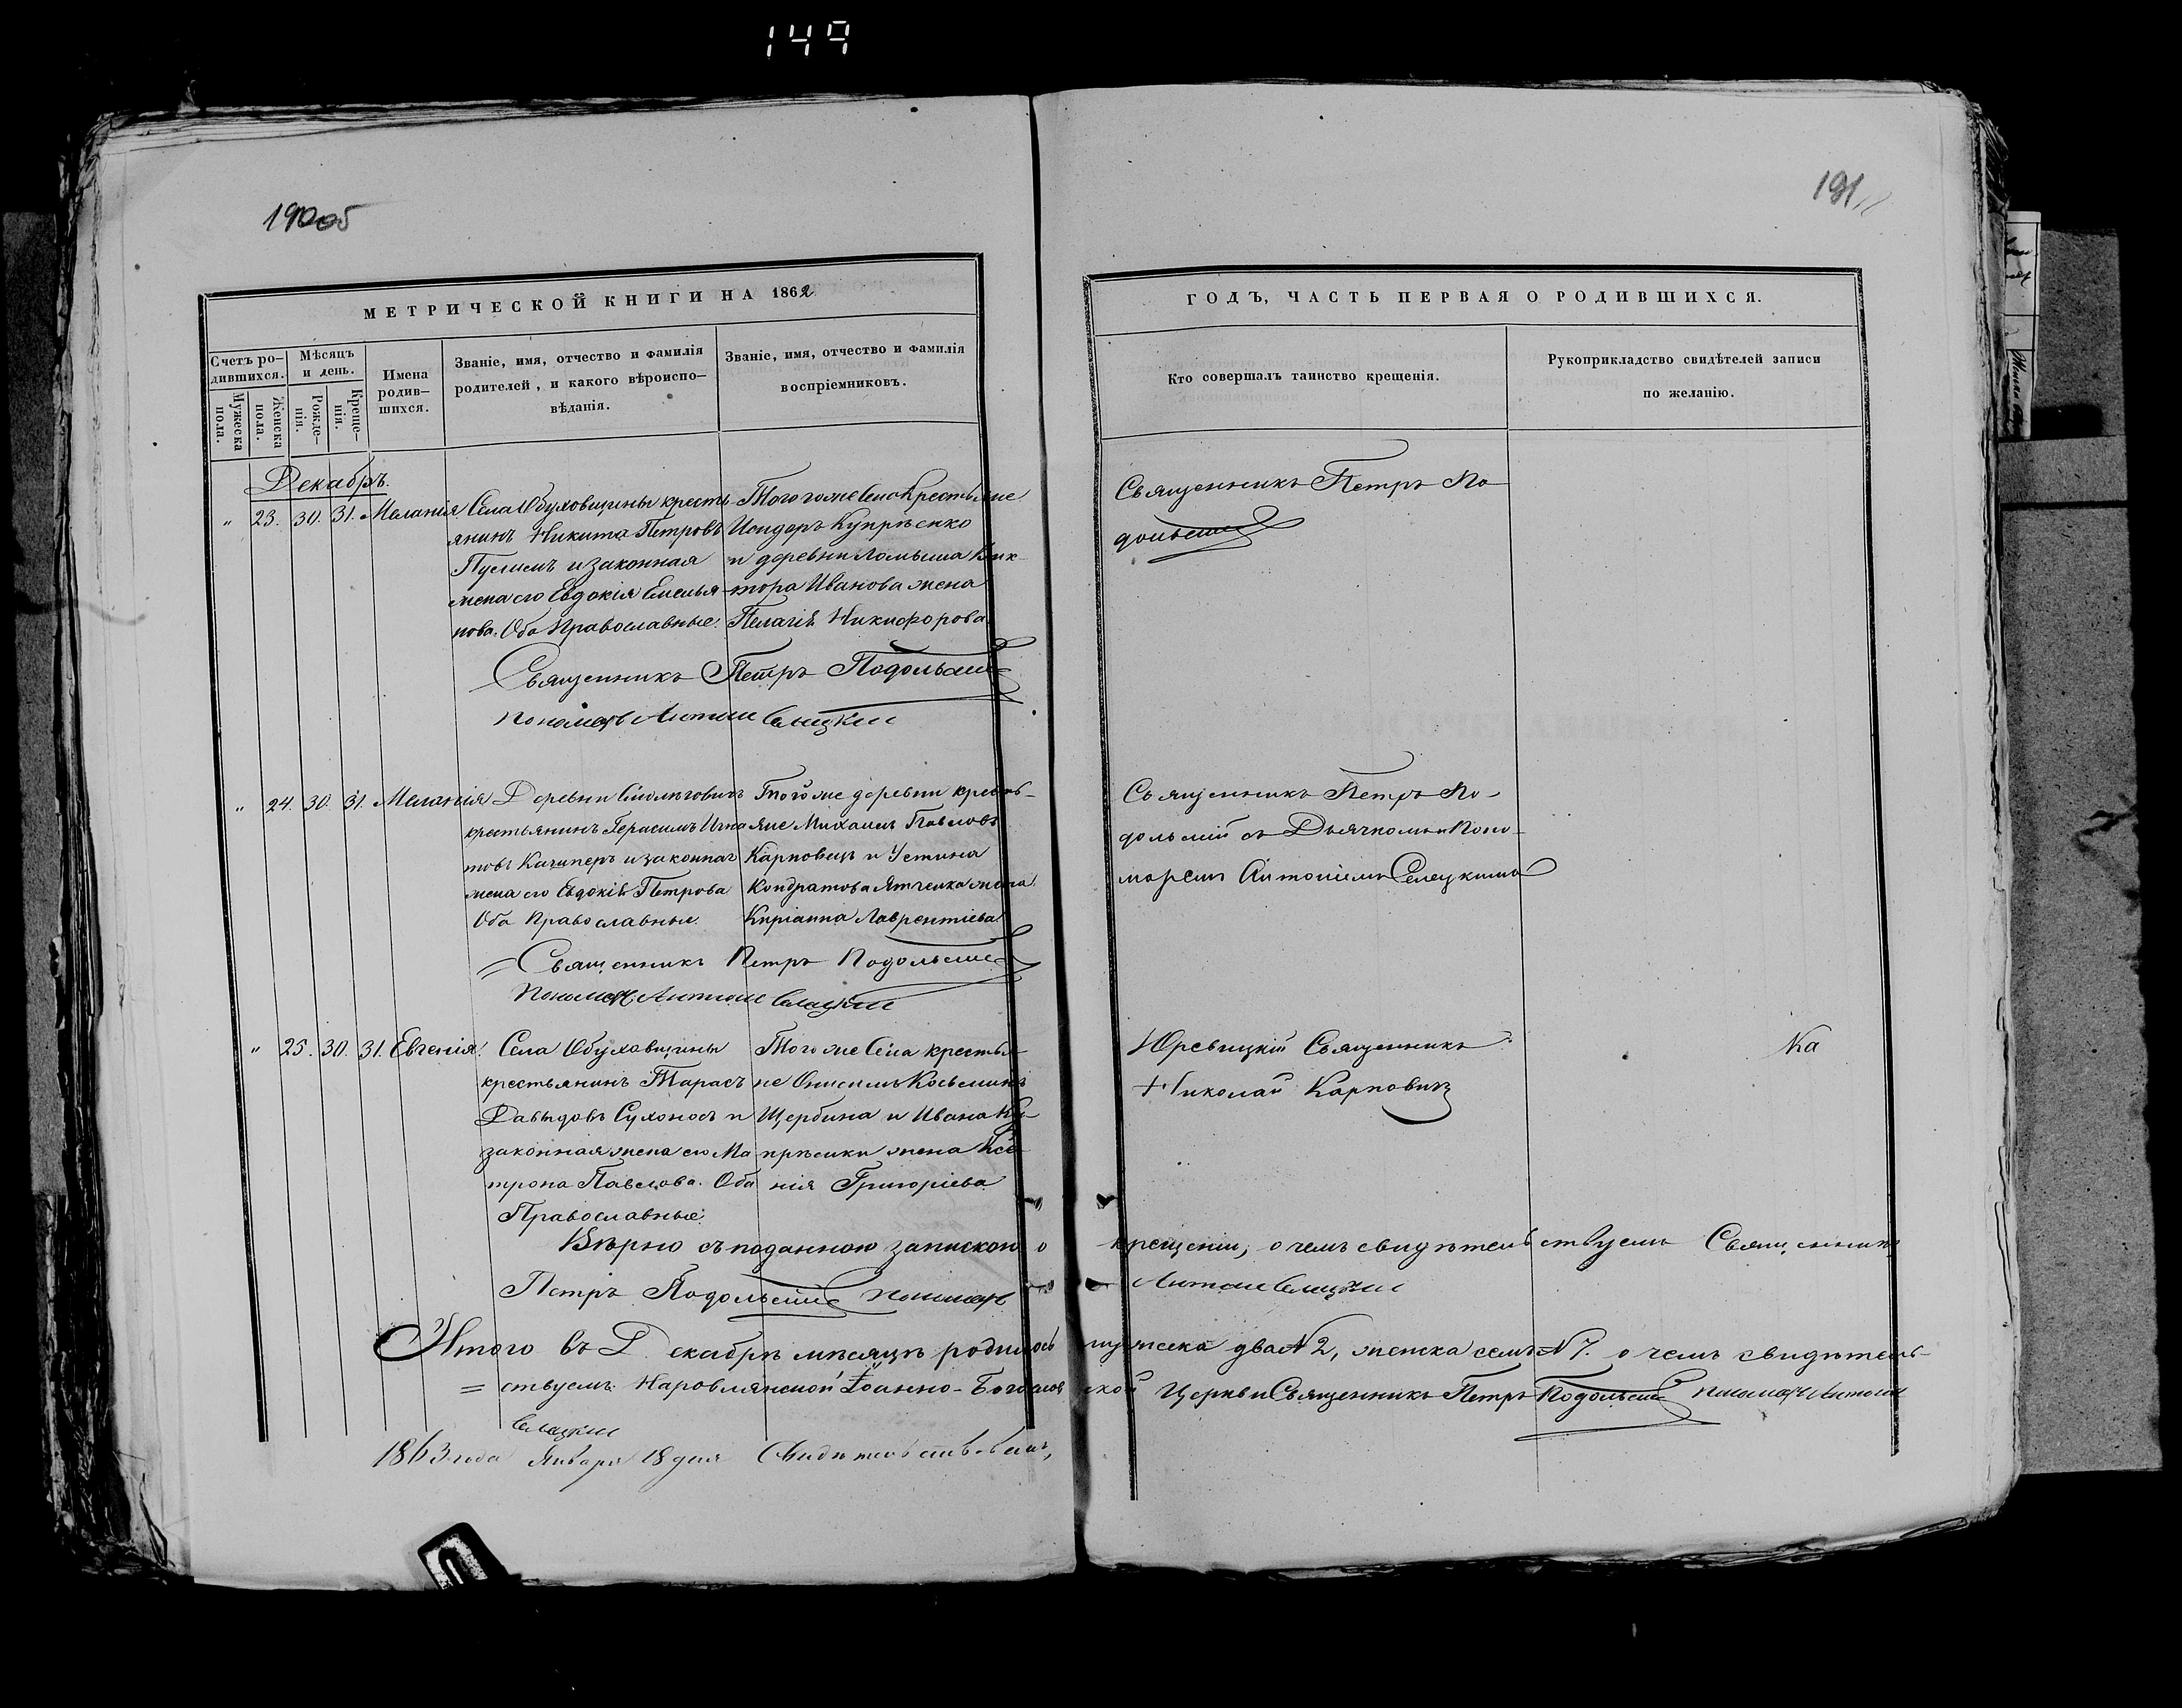 149
191
МЕТРИЧЕСКОЙ КНИГИ НА 1862
Счетъ ро-
дившихся.
Мужеска
пола.
Женска
пола.
Мѣсяцъ
и день.
Рожде-
нія.
Креще-
нія.
Имена
родив-
шихся.
Званіе, имя, отчество и фамилія
родителей, и какого вѣроиспо-
вѣданія.
Званіе, имя, отчество и фамилія
воспріемниковъ.
ГОДЪ, ЧАСТЬ ПЕРВАЯ О РОДИВШИХСЯ.
Кто совершалъ таинство крещенія.
Рукоприкладство свидѣтелей записи
по желанію.
Декабрь.
" 23. 30. 31. Меланія.
Села Обуховщины кресть
янинъ Никита Петровъ
и законная
жена его Евдокія Емелья
нова. Оба Православные.
Того же Села Крестьяне
Исидоръ Купрѣенко
и деревни Ломыша Вик-
тора Иванова жена
Пелагія Никифорова
Священникъ Петръ По
дольскій
Священникъ Петръ Подольскій
Пономарь Антоній Селецкій
" 24. 30. 31. Меланія
Деревни Смолѣговичъ
крестьянинъ Герасимъ Игна
товъ и законная
жена его Евдокія Петрова
Оба Православные.
Того же деревни кресть-
яне Михаилъ Павловъ
Карповичъ и Устина
Кондратова Ятченка жена
Кипріанна Лаврентіева
Священникъ Петръ По-
дольскій съ Дьячкомъ и Поно-
маремъ Антоніемъ Селецкимъ
Священникъ Петръ Подольскій
Пономарь Антоній Селецкій
" 25. 30. 31. Евгенія.
Села Обуховщины
крестьянинъ Тарасъ
Давыдовъ Сухоносъ и
законная жена его Ма
трона Павлова. Оба
Православные.
Того же Села крестья
не Онисимъ Косьминъ
Щербина и Ивана Ку-
прѣенки жена Ксе
нія Григоріева
Юревицкій Священникъ
Николай Карповичъ
Ка
Вѣрно съ поданною запискою о крещеніи, о чемъ свидѣтельствуемъ Священникъ
Петръ Подольскій Пономарь Антоній Селецкій
Итого въ Декабрѣ мѣсяцѣ родилось мужеска два № 2, женска семь № 7. о чемъ свидѣтель-
= ствуемъ Наровлянской Іоанно-Богословской Церкви Священникъ Петръ Подольскій Пономарь Антоній
Селецкій
1863 года Января 18 дня Свидѣтельствовалъ,